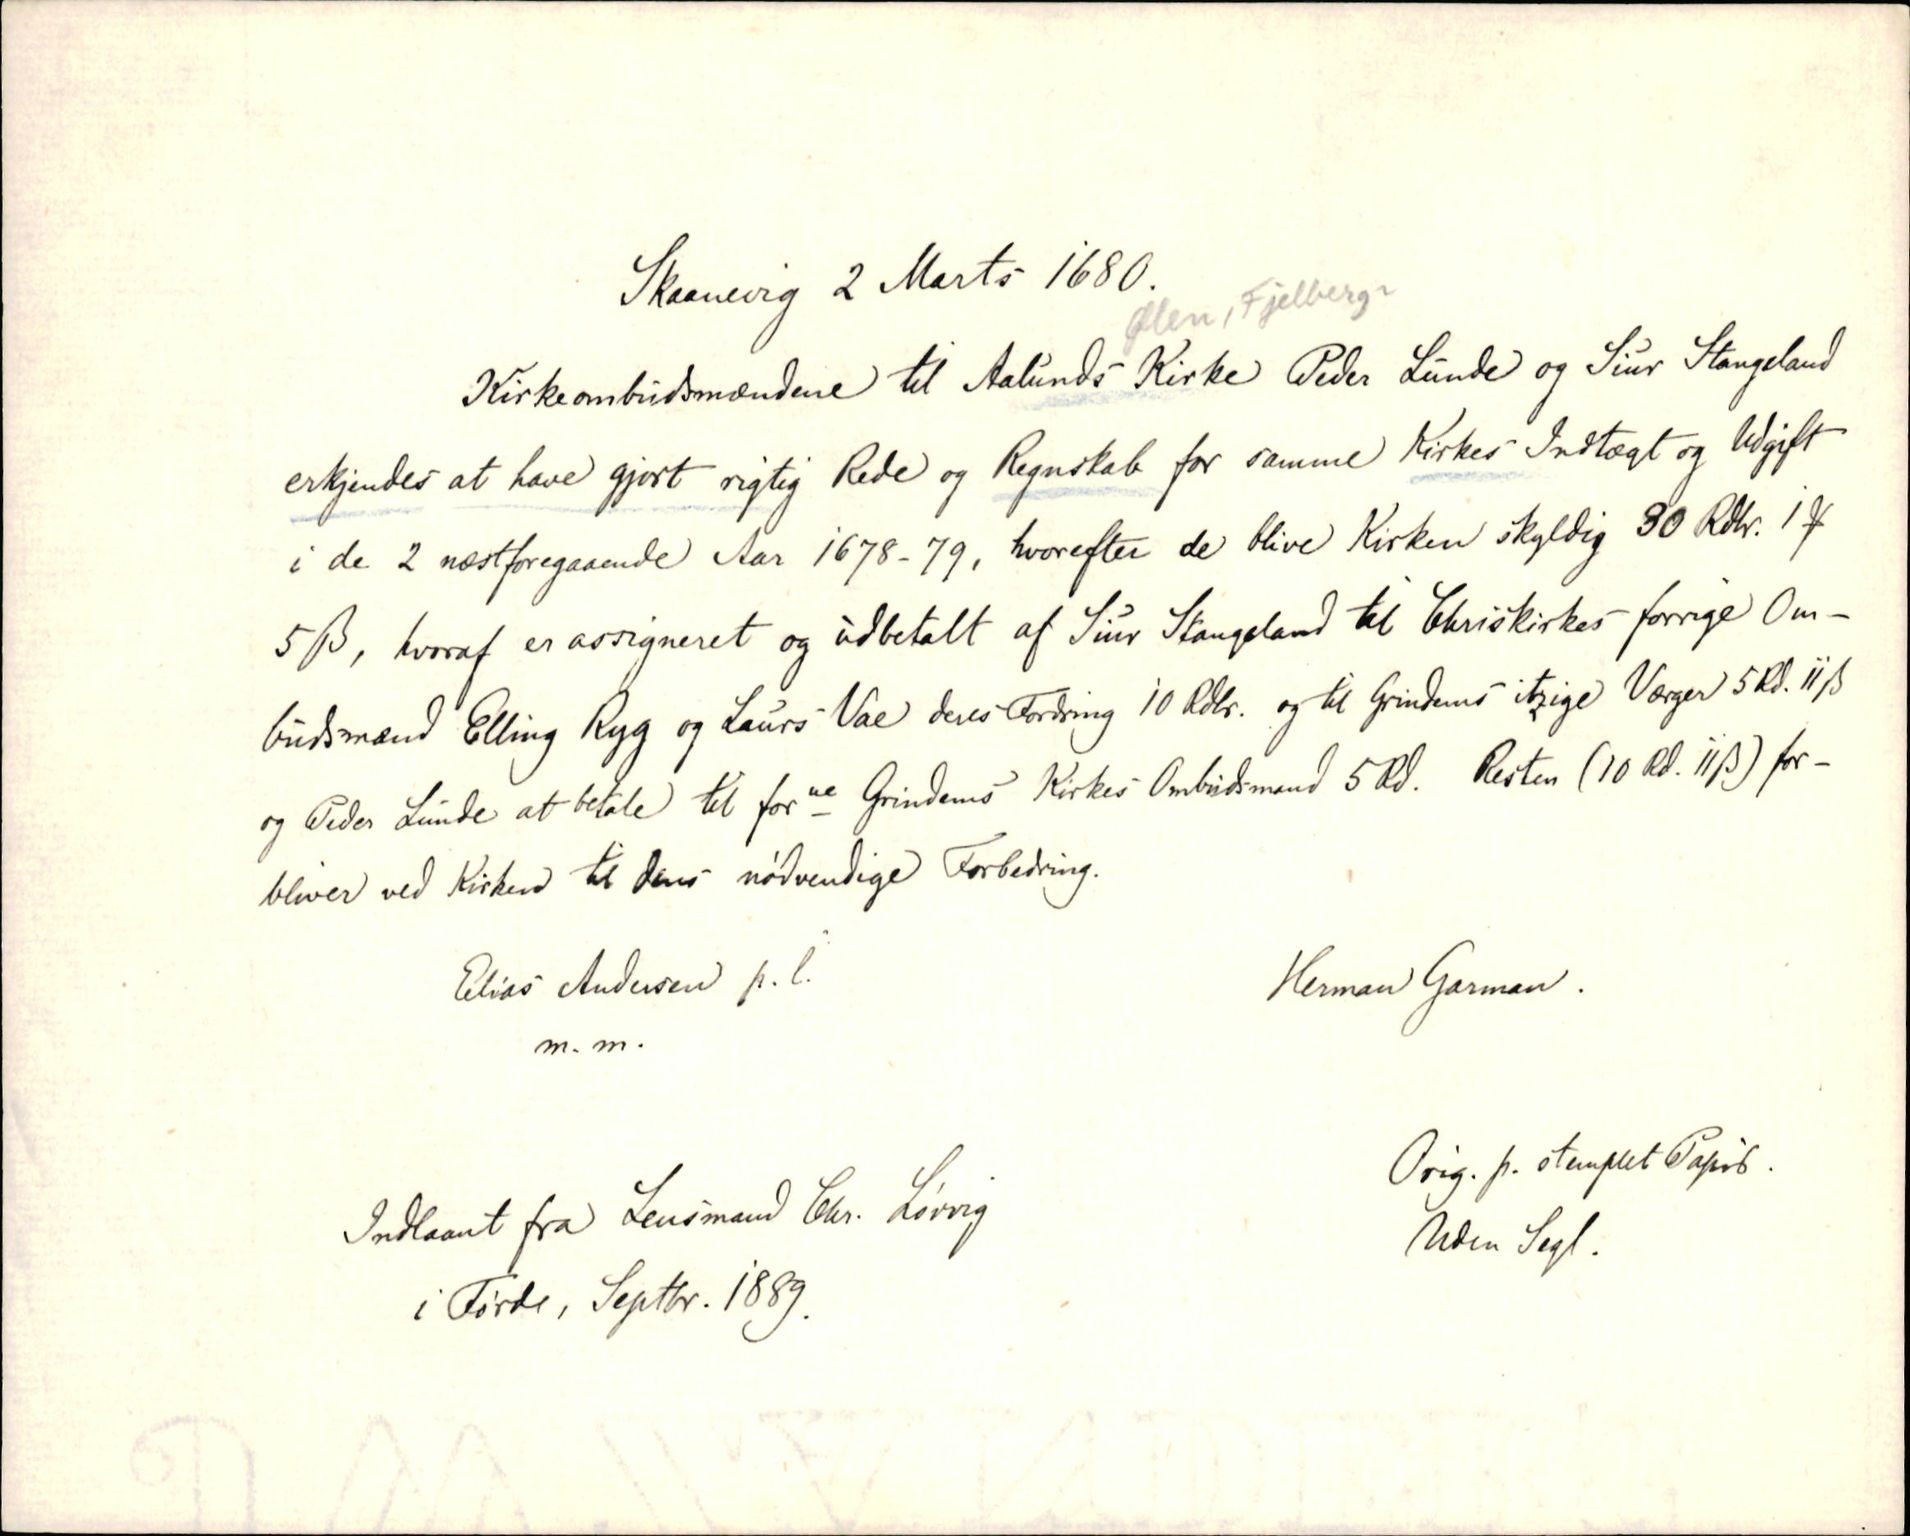 Skaanevig 2 Marts 1680.
Ølen, Fjelberg
Kirkeombudsmændene til Aalunds Kirke Peder Lunde og Siur Stangeland
erkjendes at have gjort rigtig Rede og Regnskab for samme Kirkes Indtægt og Udgift
i de 2 næstforegaaende Aar 1678-79, hvorefter de blive Kirken skyldig 30 Rdlr. 1
5 ß, hvoraf er assigneret og udbetalt af Siur Stangeland til Chriskirkes forrige Om-
budsmænd Elling Ryg og Laurs Vae deres Fordring 10 Rdlr. og til Grindems itzige Værger 5 Rd. 11 ß
og Peder Lunde at betale til forne Grindems Kirkes Ombudsmænd 5 Rd. Resten (10 Rd. 11 ß) for-
bliver ved Kirken til dens nödvendige Forbedring.
Elias Andersen p. l.
m. m.
Herman Garman.
Orig. p. stemplet Papir.
Uden Segl.
Indlaant fra Lensmand Chr. Løvvig
i Førde, Septbr. 1889.